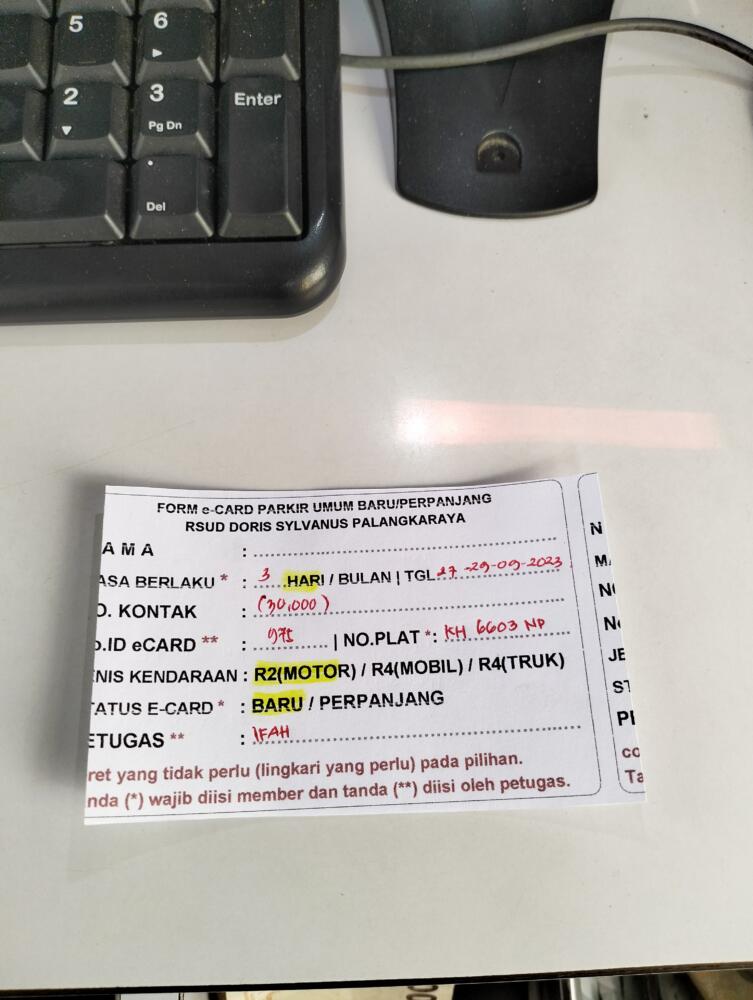 5 6
2 3 Enter
Pg Dn
.
Del
FORM e-CARD PARKIR UMUM BARU/PERPANJANG
RSUD DORIS SYLVANUS PALANGKARAYA
A M A :
ASA BERLAKU * : 3 HARI / BULAN | TGL 27 -29-09-2023
O. KONTAK : (30,000)
o.ID eCARD ** : 975 | NO.PLAT *: KH 6603 NP
NIS KENDARAAN : R2(MOTOR) / R4(MOBIL) / R4(TRUK)
TATUS E-CARD * : BARU / PERPANJANG
ETUGAS ** : IFAH
ret yang tidak perlu (lingkari yang perlu) pada pilihan.
nda (*) wajib diisi member dan tanda (**) diisi oleh petugas.
N
MA
NO
No
JE
ST
PE
co
Ta